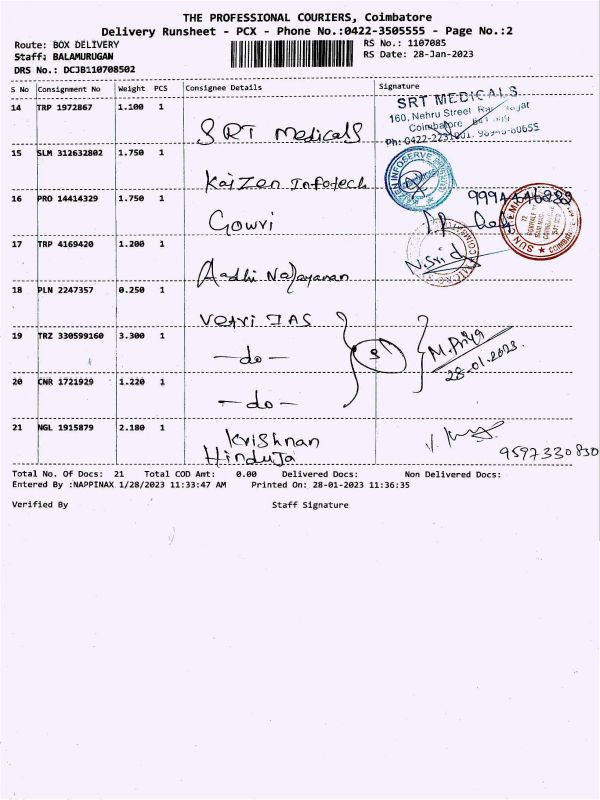 THE PROFESSIONAL COURIERS, Coimbatore
Delivery Runsheet - PCX - Phone No.:0422-3505555 - Page No.:2
Route: BOX DELIVERY RS No.: 1107085
Staff: BALAMURUGAN RS Date: 28-Jan-2023
DRS No.: DCJB110708502
S No Consignment No Weight PCS Consignee Details Signature
14 TRP 1972867 1.100 1 SRT Medicals
SRT MEDICALS
160, Nehru Street
Coimbatore
15 SLM 312632802 1.750 1 Kaizen Infotech
16 PRO 14414329 1.750 1 Gowri
17 TRP 4169420 1.200 1 Aadhi Narayanan
N.Srid
18 PLN 2247357 0.250 1 Vetri IAS
19 TRZ 330599160 3.300 1 -do-
M.Priya
28-01-2023
20 CNR 1721929 1.220 1 -do-
21 NGL 1915879 2.180 1 Krishnan
Hinduja
9597330830
Total No. Of Docs: 21 Total COD Amt: 0.00 Delivered Docs: Non Delivered Docs:
Entered By :NAPPINAX 1/28/2023 11:33:47 AM Printed On: 28-01-2023 11:36:35
Verified By Staff Signature